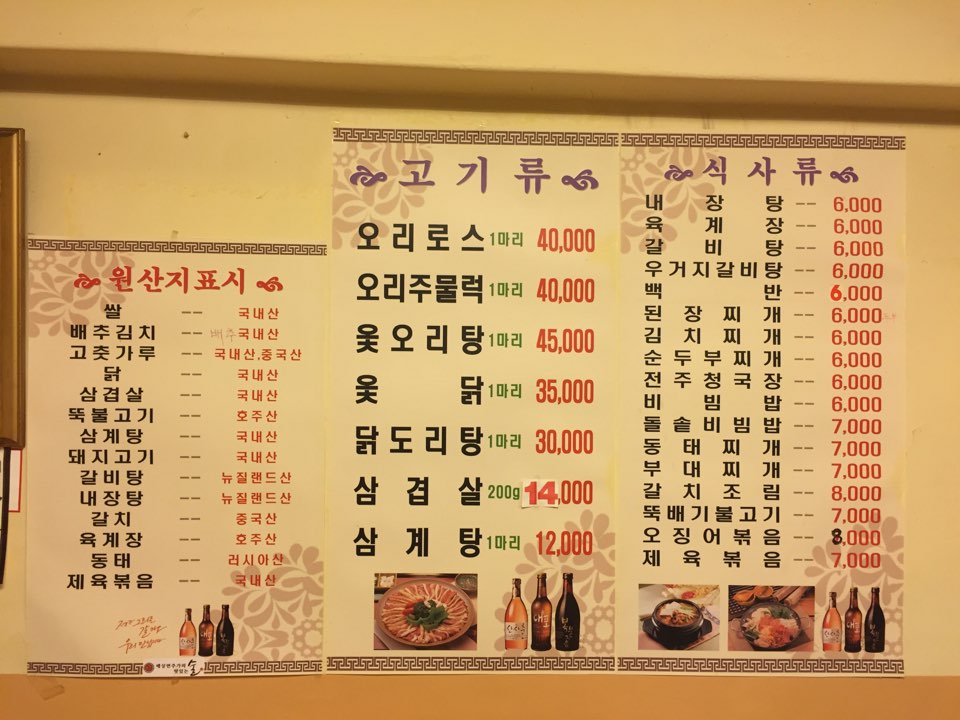 원산지표시
쌀 -- 국내산
배추김치 -- 배추 국내산
고춧가루 -- 국내산,중국산
닭 -- 국내산
삼겹살 -- 국내산
뚝불고기 -- 호주산
삼계탕 -- 국내산
돼지고기 -- 국내산
갈비탕 -- 뉴질랜드산
내장탕 -- 뉴질랜드산
갈치 -- 중국산
육계장 -- 호주산
동태 -- 러시아산
제육볶음 -- 국내산
고기류
오리로스 1마리 40,000
오리주물럭 1마리 40,000
옻오리탕 1마리 45,000
옻닭 1마리 35,000
닭도리탕 1마리 30,000
삼겹살 200g 14,000
삼계탕 1마리 12,000
식사류
내장탕 -- 6,000
육계장 -- 6,000
갈비탕 -- 6,000
우거지갈비탕 -- 6,000
백반 -- 6,000
된장찌개 -- 6,000
김치찌개 -- 6,000
순두부찌개 -- 6,000
전주청국장 -- 6,000
비빔밥 -- 6,000
돌솥비빔밥 -- 7,000
동태찌개 -- 7,000
부대찌개 -- 7,000
갈치조림 -- 8,000
뚝배기불고기 -- 7,000
오징어볶음 -- 8,000
제육볶음 -- 7,000